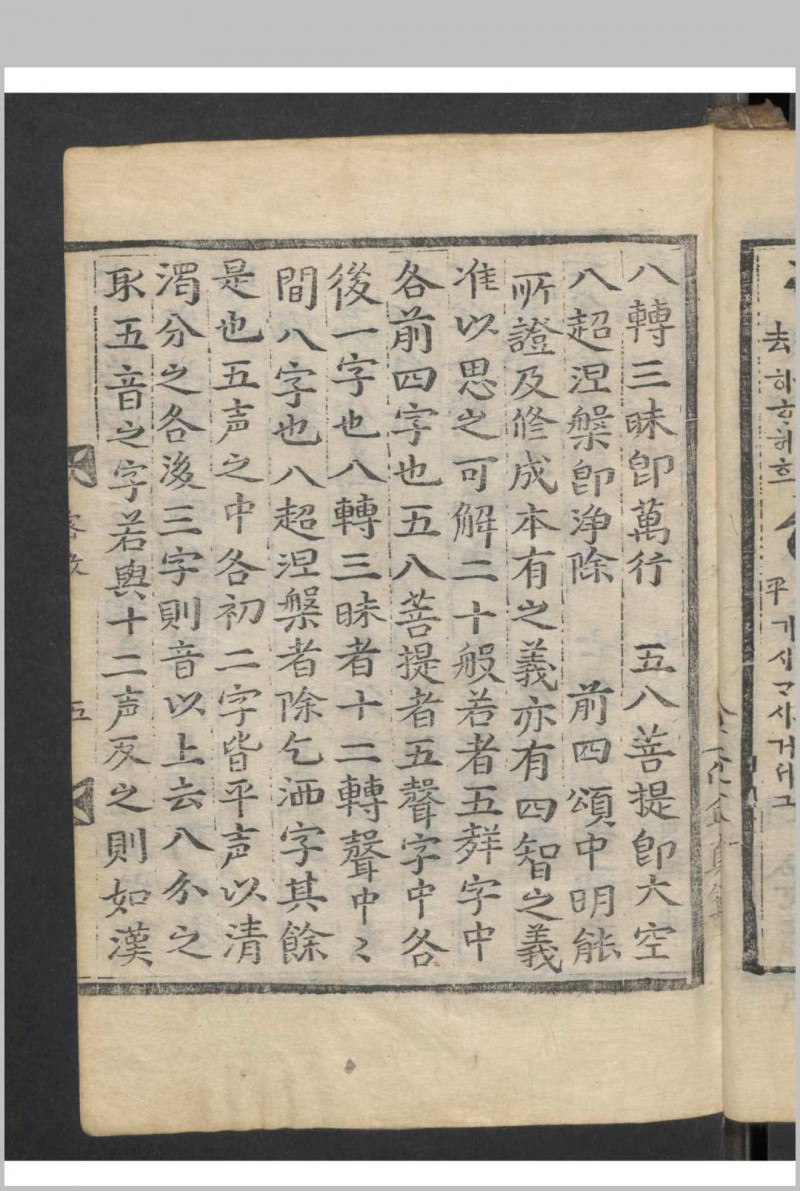 八轉三昧卽萬行　五八菩提卽大空
八超涅槃卽淨除　前四頌中明能
所證及修成本有之義亦有四智之義
准以思之可解二十般若者五群字中
各前四字也五八菩提者五聲字中各
後一字也八轉三昧者十二轉聲中〻
間八字也八超涅槃者除乞洒字其餘
是也五声之中各初二字皆平声以清
濁分之各後三字則音以上去八分之
取五音之字若與十二声反之則如漢
五
去 하 허
平 기시
사거